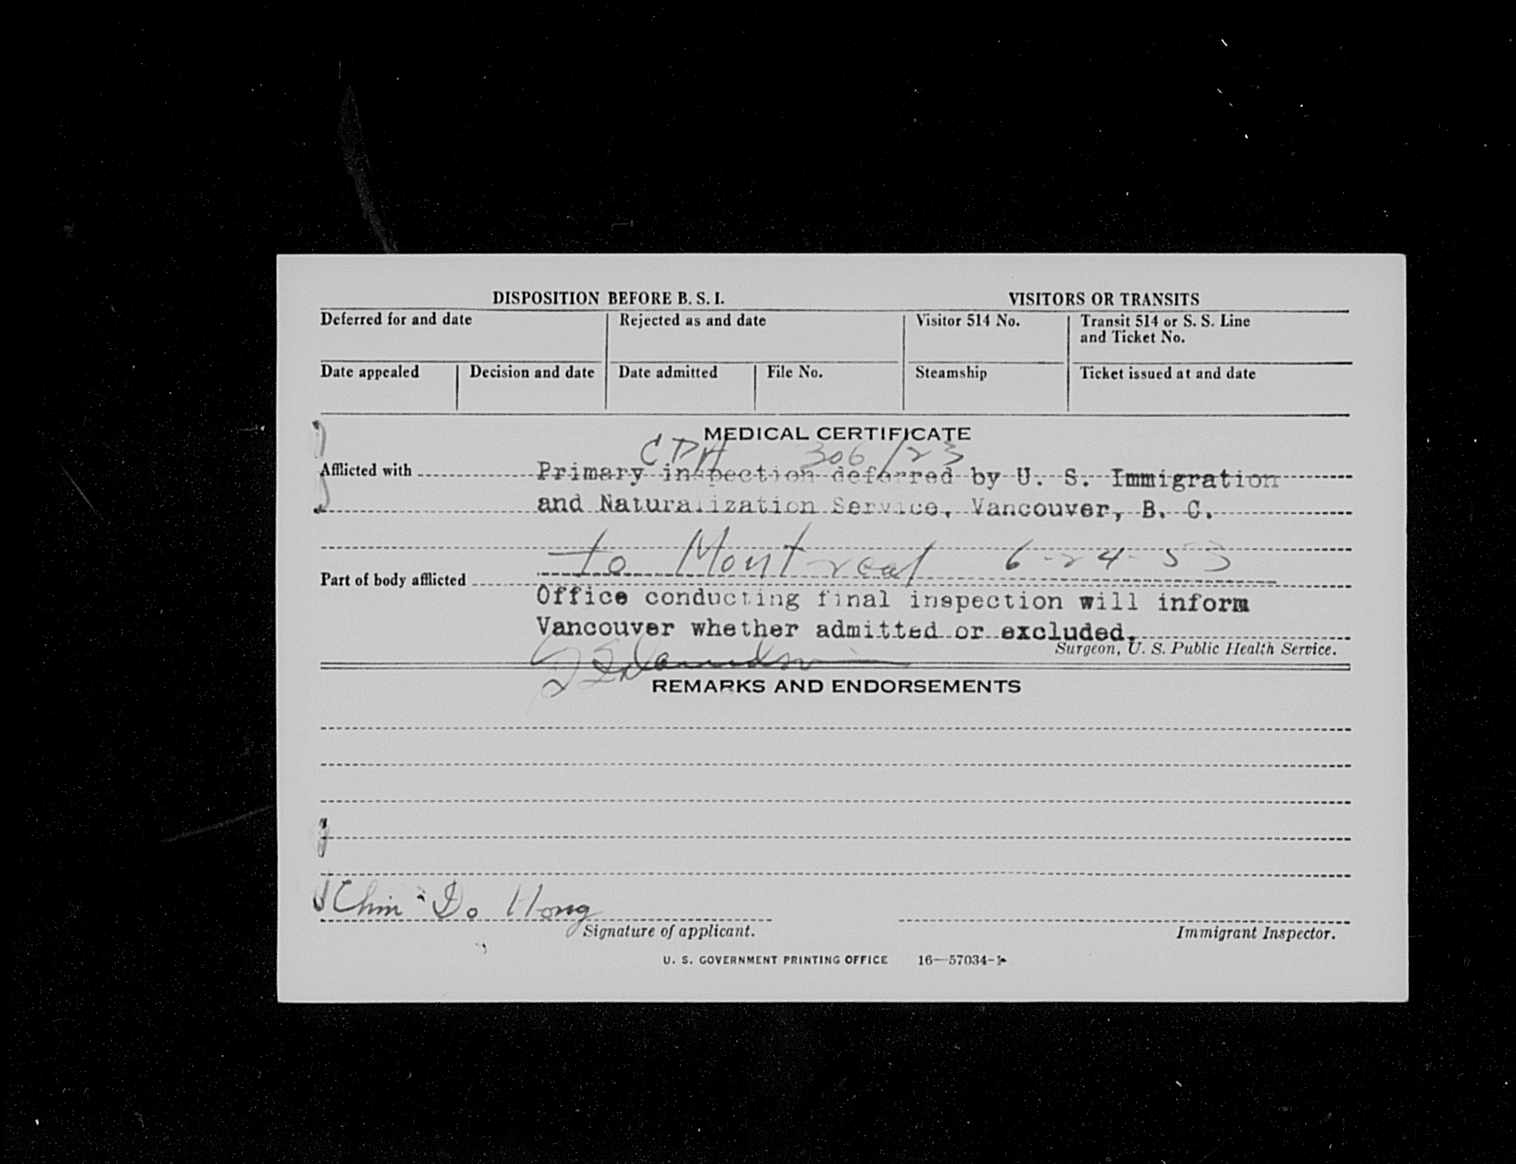 DISPOSITION BEFORE B. S. I.
VISITORS OR TRANSITS
Deferred for and date
Rejected as and date
Visitor 514 No.
Transit 514 or S. S. Line
and Ticket No.
Date appealed
Decision and date
Date admitted
File No.
Steamship
Ticket issued at and date
MEDICAL CERTIFICATE
306/23
Afflicted with Primary inspection deferred by U. S. Immigration
and Naturalization Service, Vancouver, B. C.
to Montreal 6-24-53
Part of body afflicted
Office conducting final inspection will inform
Vancouver whether admitted or excluded.
Surgeon, U. S. Public Health Service.
REMARKS AND ENDORSEMENTS
Chin Do Hong
Signature of applicant.
Immigrant Inspector.
U. S. GOVERNMENT PRINTING OFFICE 16—57034-1